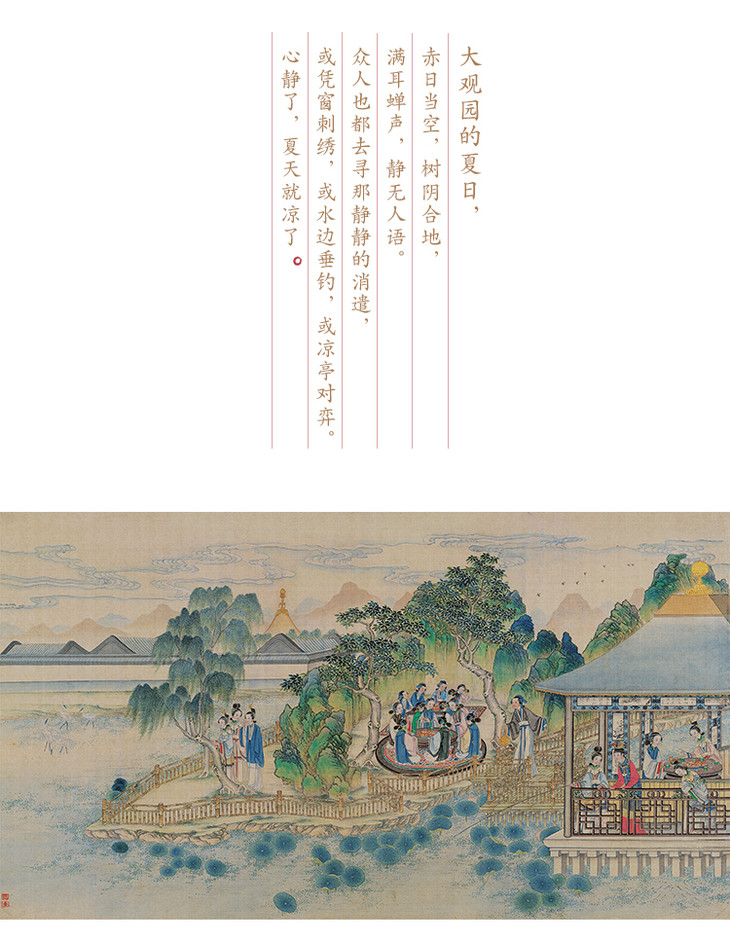 大观园的夏日，
赤日当空，树阴合地，
满耳蝉声，静无人语。
众人也都去寻那静静的消遣，
或凭窗刺绣，或水边垂钓，或凉亭对弈。
心静了，夏天就凉了。